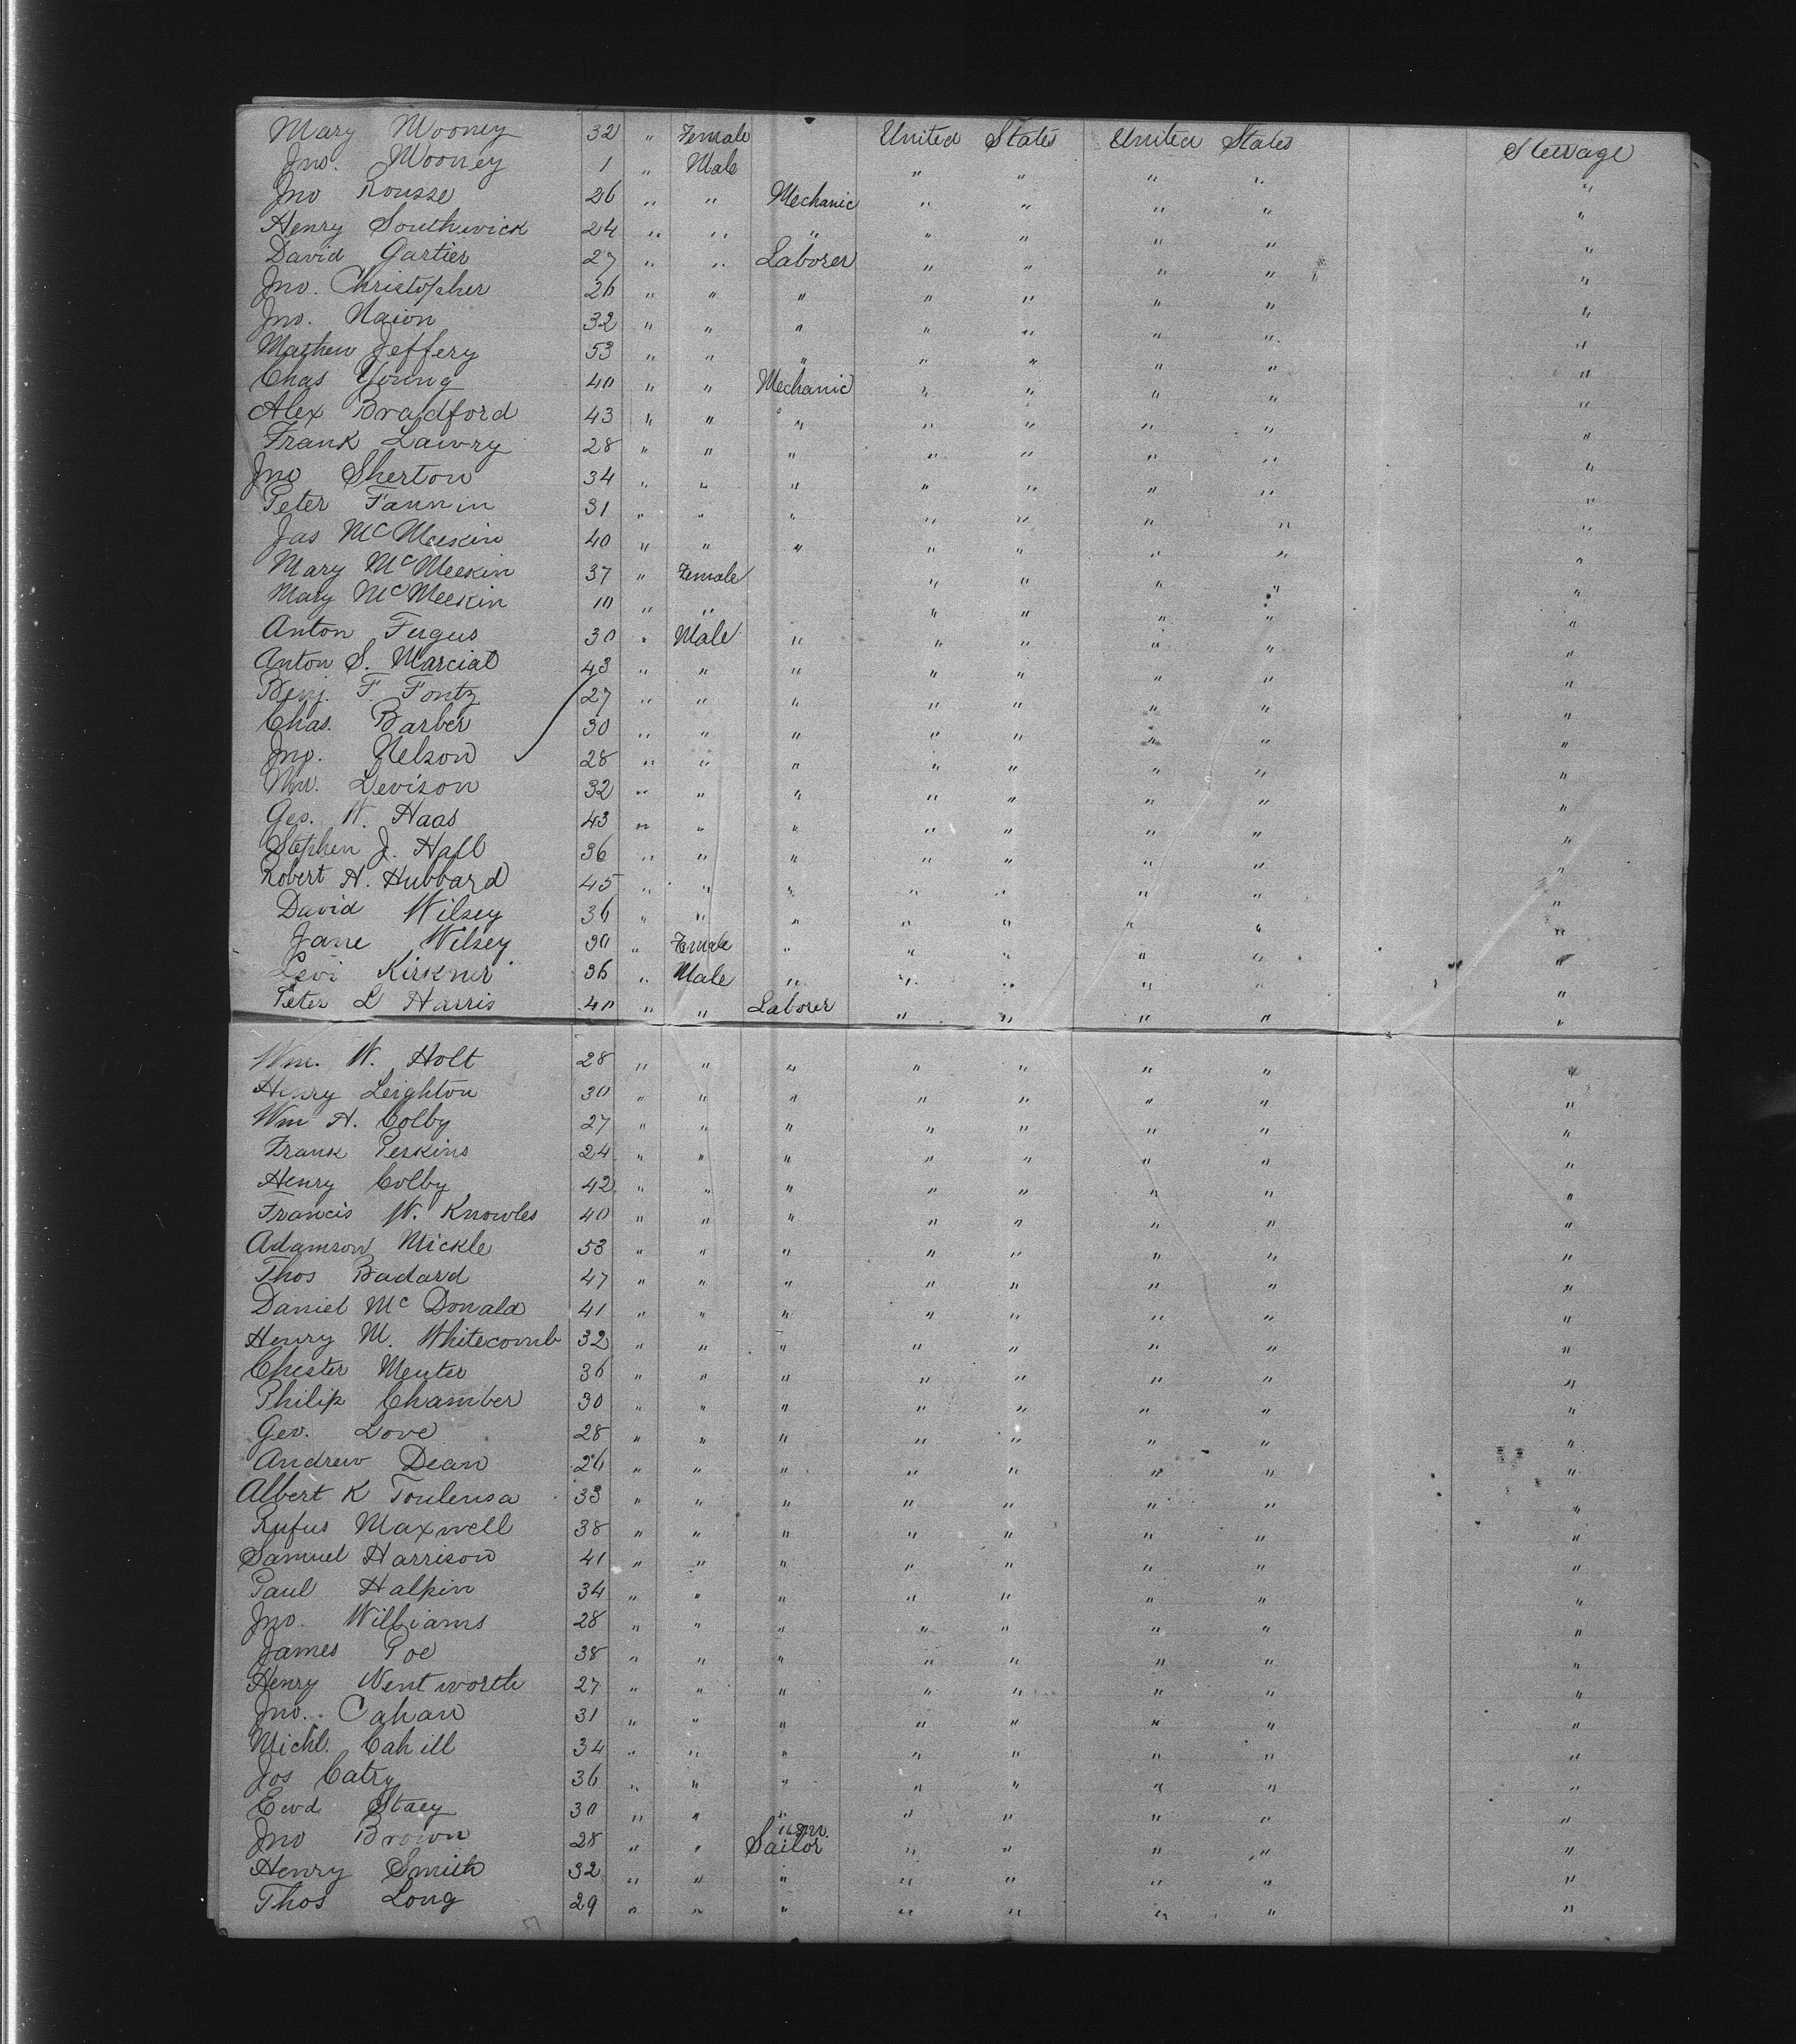 Mary Mooney 32 " Female United States United States Steerage
Jno. Mooney 1 " Male " " " " "
Jno Rousse 26 " " Mechanic " " " " "
Henry Southwick 24 " " " " " " " "
David Gartier 27 " " Laborer " " " " "
Jno. Christopher 26 " " " " " " " "
Jno. Naion 32 " " " " " " " "
Mathew Jeffery 53 " " " " " " " "
Chas Young 40 " " Mechanic " " " " "
Alex Bradford 43 " " " " " " " "
Frank Lawry 28 " " " " " " " "
Jno Sherton 34 " " " " " " " "
Peter Fannin 31 " " " " " " " "
Jas McMeekin 40 " " " " " " " "
Mary McMeekin 37 " Female " " " " "
Mary McMeekin 10 " " " " " " "
Anton Fergus 30 " Male " " " " " "
Anton S. Marcial 43 " " " " " " " "
Benj. F. Fontz 27 " " " " " " " "
Chas. Barber 30 " " " " " " " "
Jno. Nelson 28 " " " " " " " "
Wm. Levison 32 " " " " " " " "
Geo. W. Haas 43 " " " " " " " "
Stephen J. Hall 36 " " " " " " " "
Robert H. Hubbard 45 " " " " " " " "
David Wilsey 36 " " " " " " " "
Jane Wilsey 30 " Female " " " " " "
Levi Kirkner 36 " Male " " " " " "
Peter L Harris 40 " " Laborer " " " " "
Wm. W. Holt 28 " " " " " " " "
Henry Leighton 30 " " " " " " " "
Wm H. Colby 27 " " " " " " " "
Frank Perkins 24 " " " " " " " "
Henry Colby 42 " " " " " " " "
Francis W. Knowles 40 " " " " " " " "
Adamson Mickle 53 " " " " " " " "
Thos Badard 47 " " " " " " " "
Daniel Mc Donald 41 " " " " " " " "
Henry M. Whitecomb 32 " " " " " " " "
Chester Menter 36 " " " " " " " "
Philip Chamber 30 " " " " " " " "
Geo. Love 28 " " " " " " " "
Andrew Dean 26 " " " " " " " "
Albert K Toulensa 33 " " " " " " " "
Rufus Maxwell 38 " " " " " " " "
Samuel Harrison 41 " " " " " " " "
Paul Halpin 34 " " " " " " " "
Jno. Williams 28 " " " " " " " "
James Poe 38 " " " " " " " "
Henry Wentworth 27 " " " " " " " "
Jno. Cahan 31 " " " " " " " "
Michl. Cahill 34 " " " " " " " "
Jos Catry 36 " " " " " " " "
Ewd Stacy 30 " " " " " " " "
Jno Brown 28 " " Sailor " " " " "
Henry Smith 32 " " " " " " " "
Thos Long 29 " " " " " " " "
57